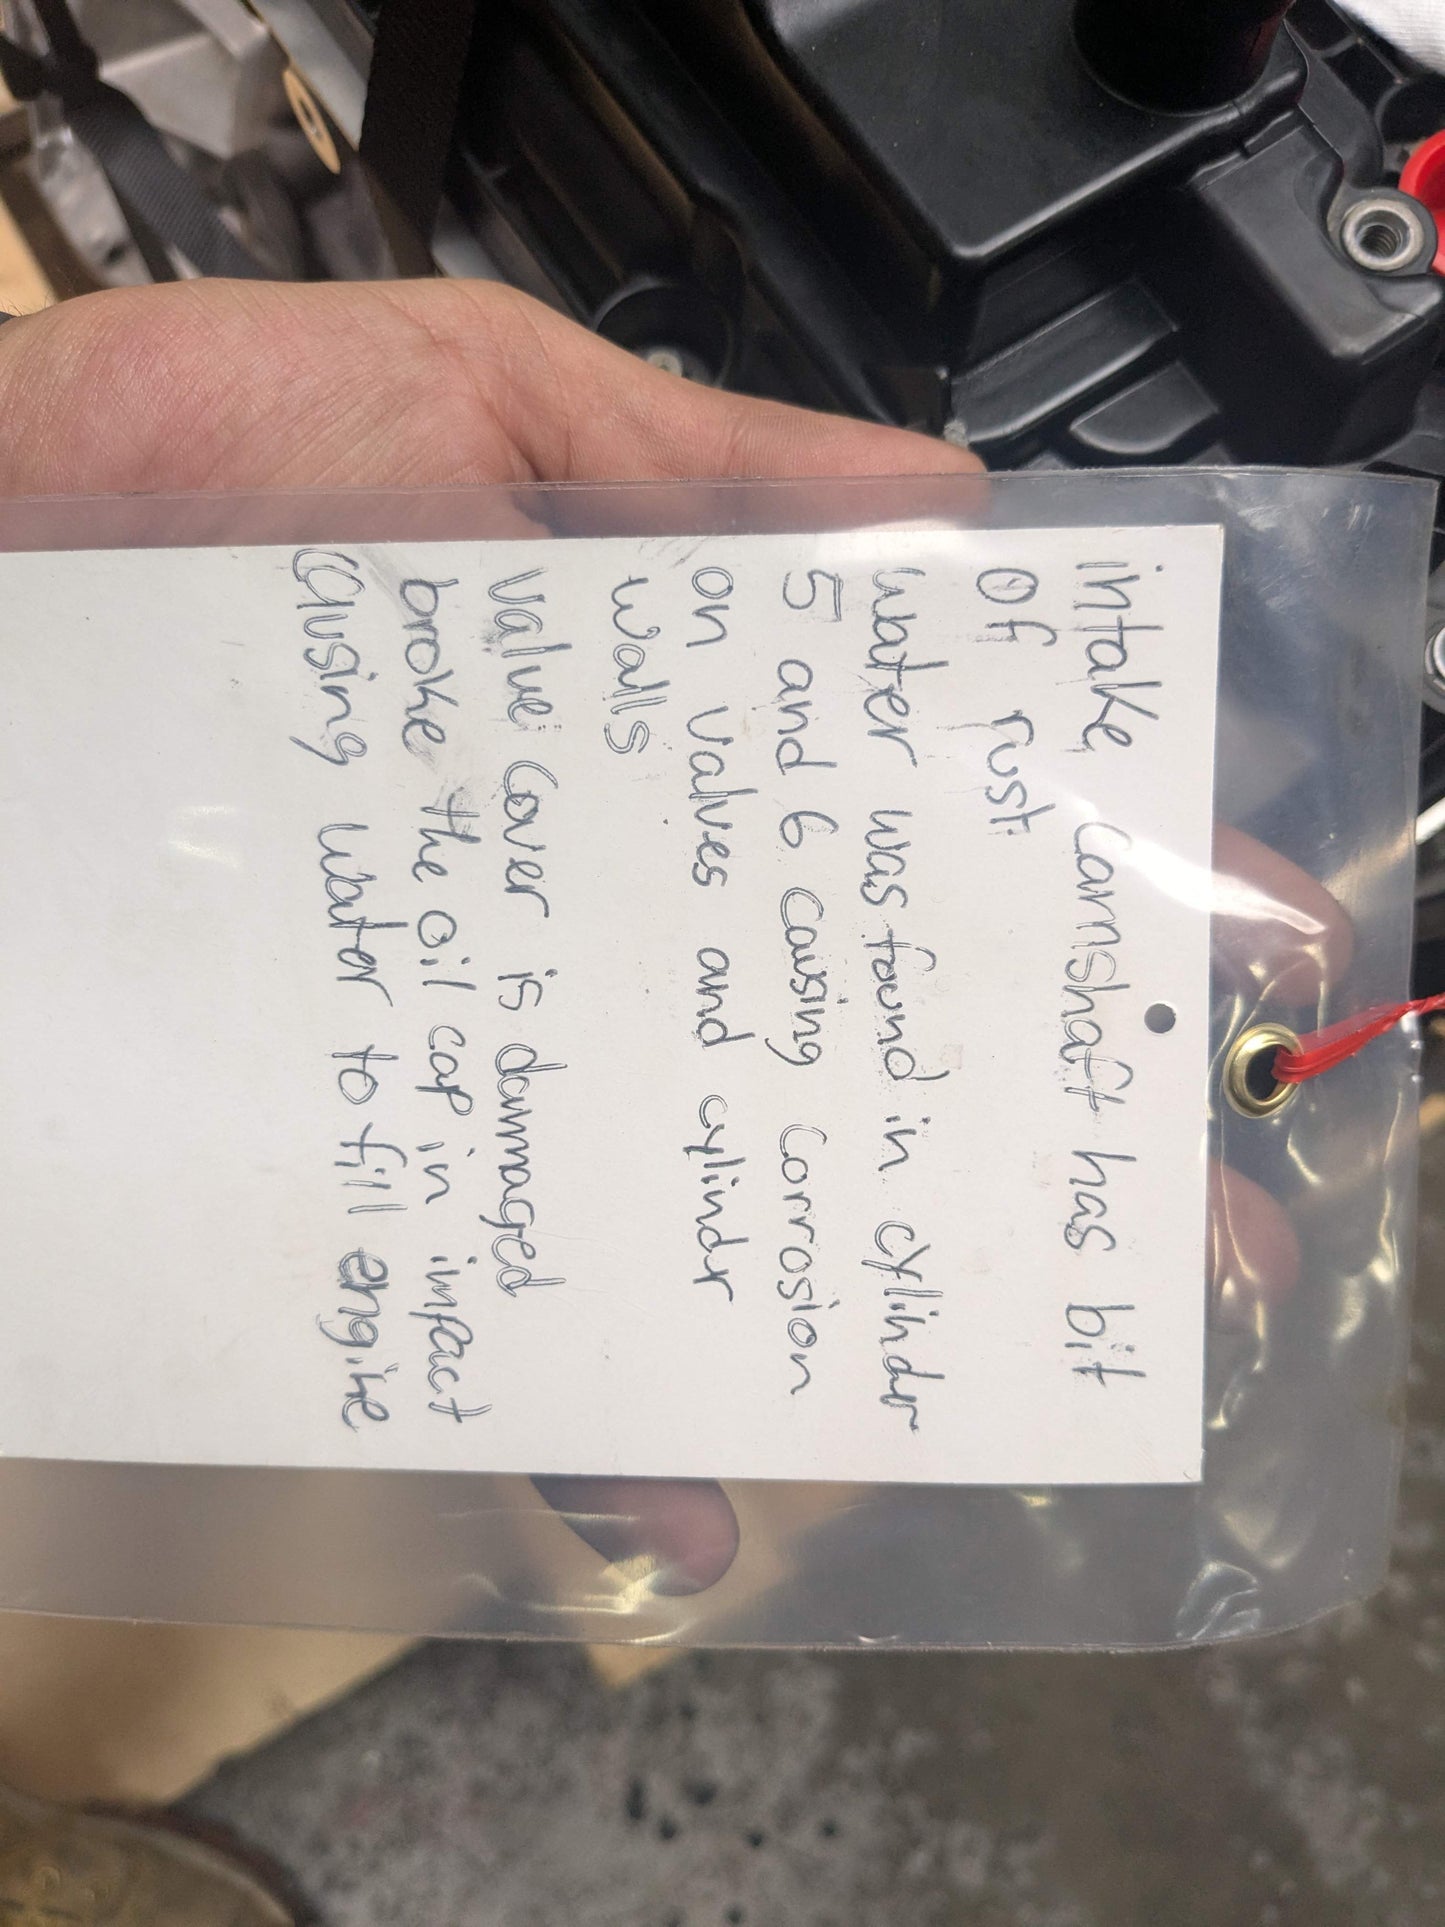 intake camshaft has bit
Of rust
water was found in cylindr
5 and 6 causing corrosion
on valves and cylindr
walls
Valve cover is damaged
broke the oil cap in impact
causing water to fill engine